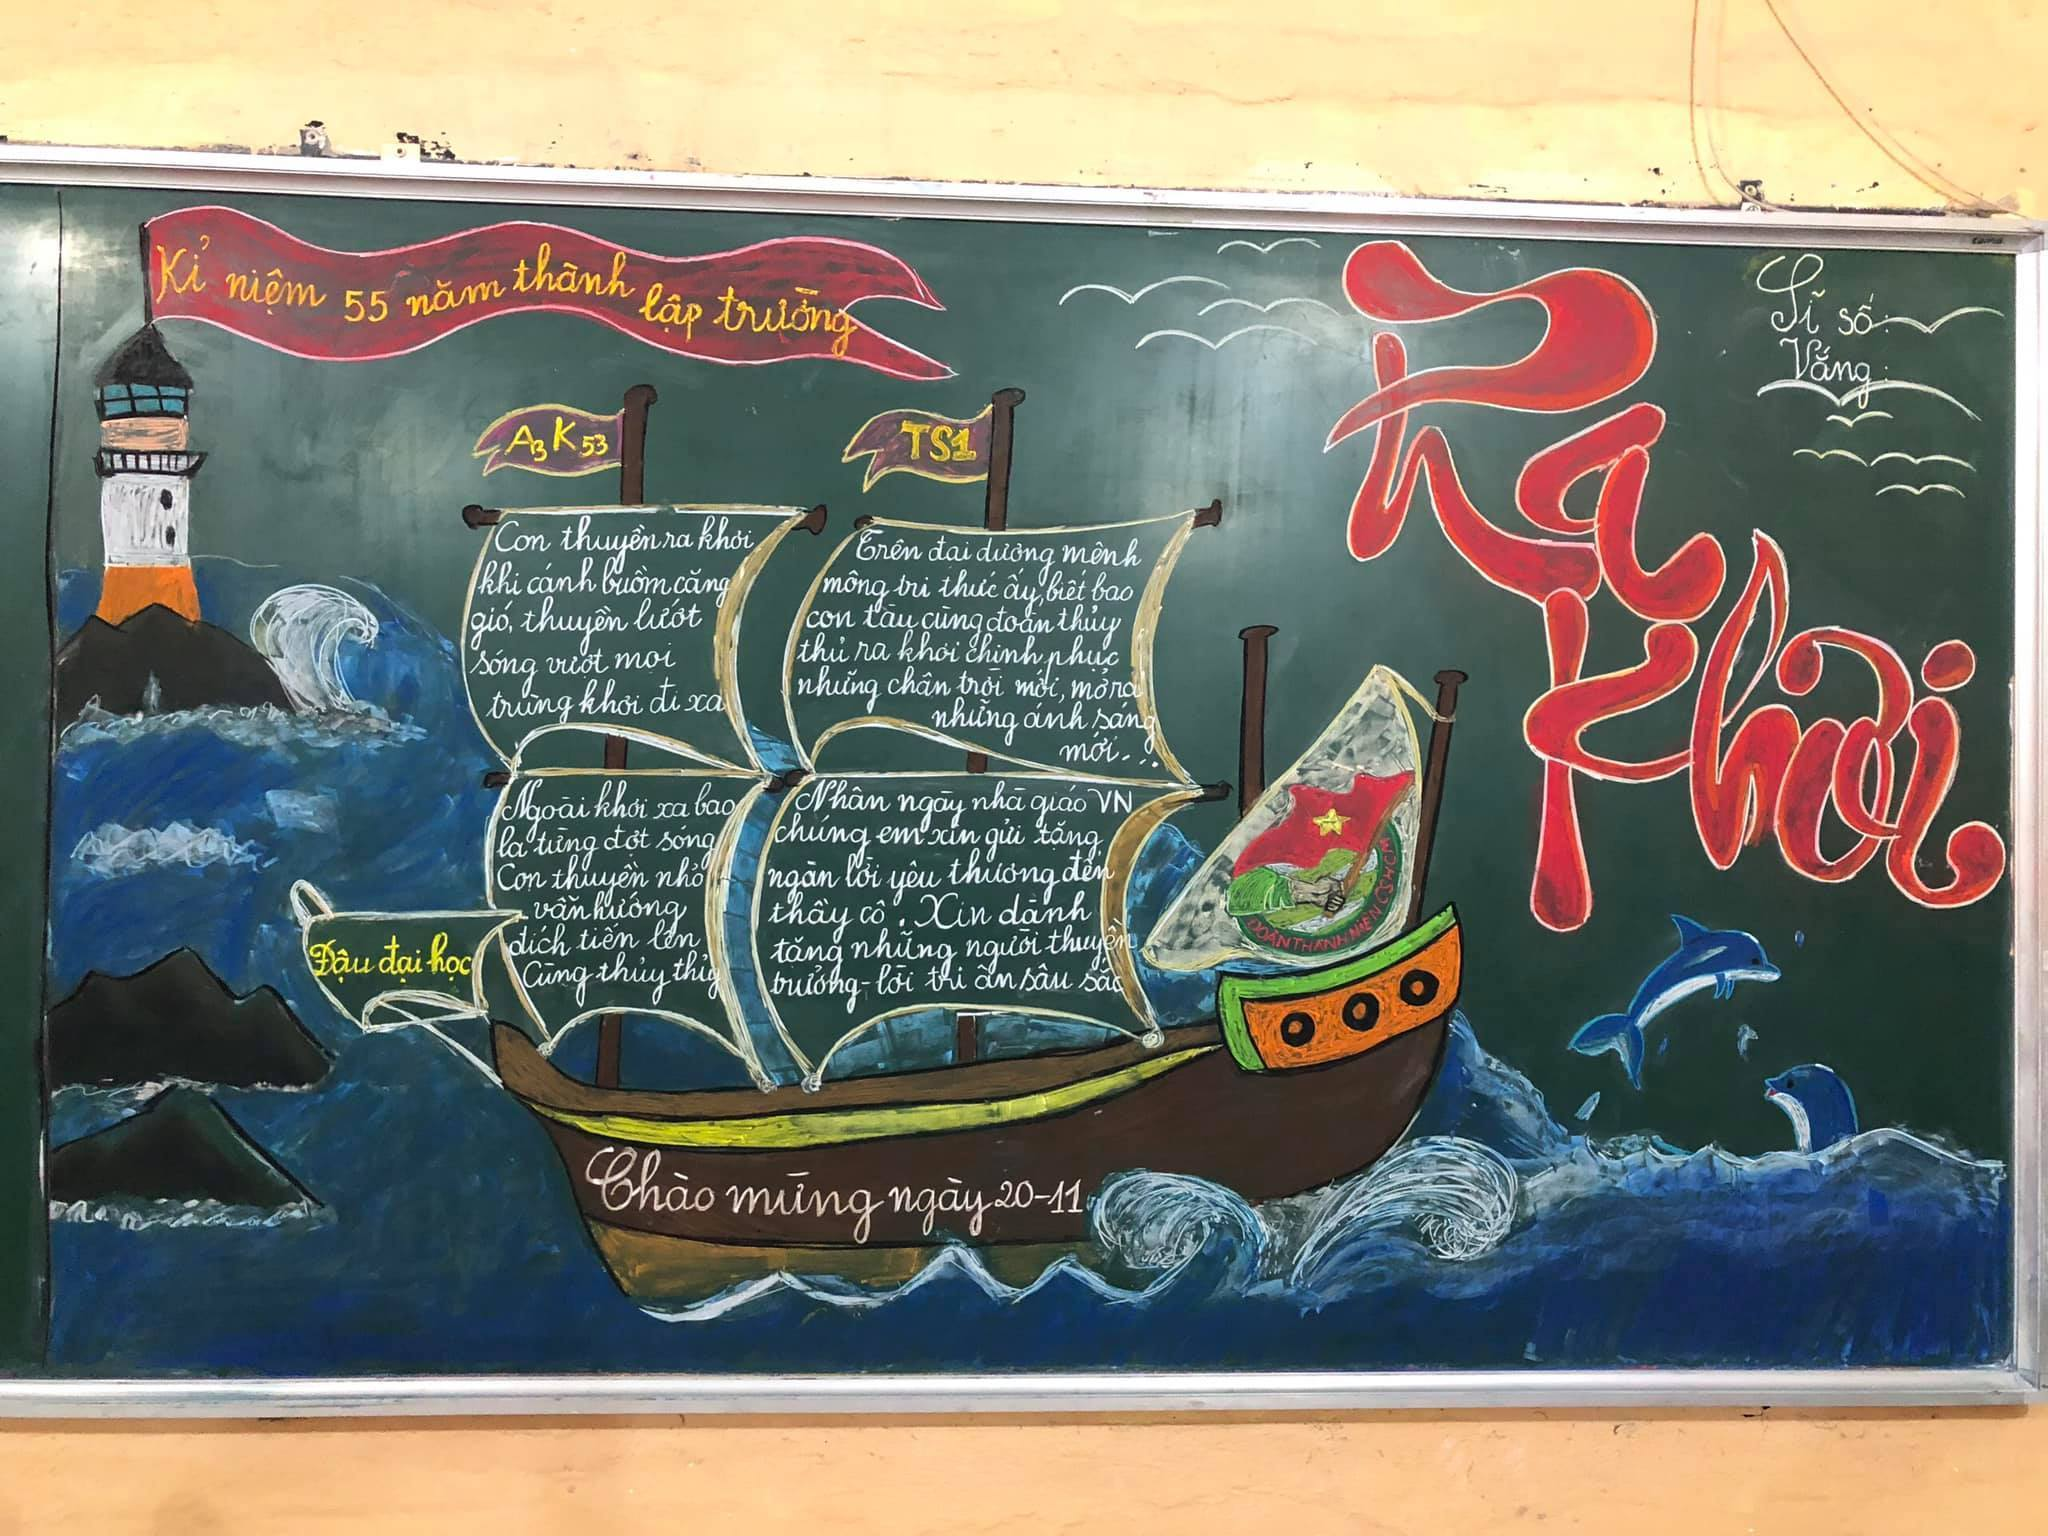 Kỉ niệm 55 năm thành lập trường
Ra
Khơi
Sĩ số:
Vắng:
A3K53
TS1
Con thuyền ra khơi
khi cánh buồm căng
gió, thuyền lướt
sóng vượt mọi
trùng khơi đi xa
Trên đại dương mênh
mông tri thức ấy, biết bao
con tàu cùng đoàn thủy
thủ ra khơi chinh phục
những chân trời mới, mở ra
những ánh sáng
mới...
Ngoài khơi xa bao
la từng đợt sóng
Con thuyền nhỏ
vẫn hướng
đích tiến lên
Cùng thủy thủ
Nhân ngày nhà giáo VN
chúng em xin gửi tặng
ngàn lời yêu thương đến
thầy cô. Xin dành
tặng những người thuyền
trưởng - lời tri ân sâu sắc
Đậu đại học
ĐOÀN THANH NIÊN CSHCM
Chào mừng ngày 20-11